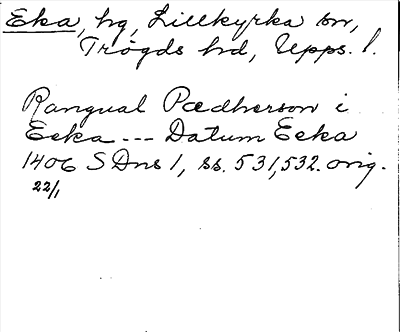 Eka, hg, Lillkyrka sn,
Trögds hd, Upps. l.
Rangual Pædherson i
Eeka --- Datum Eeka
1406 SDns 1, ss. 531,532. orig.
22/1